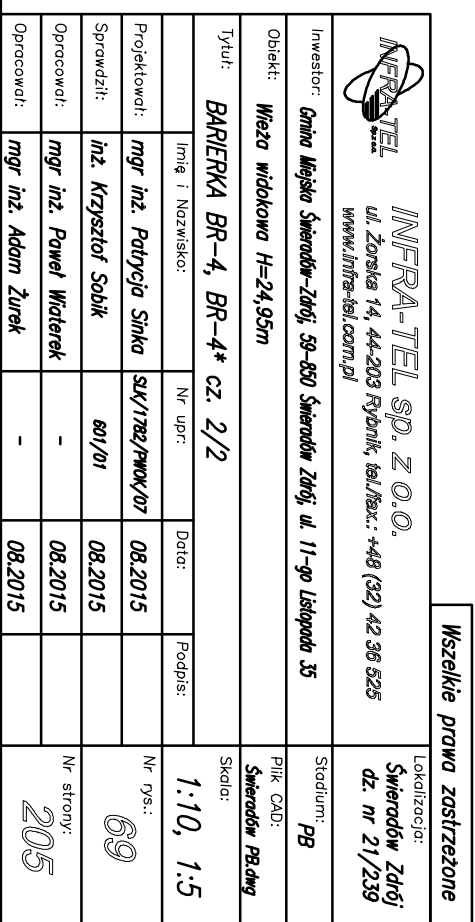 Wszelkie prawa zastrzeżone
INFRA-TEL
Sp. z o.o.
INFRA-TEL sp. z o.o.
ul. Żorska 14, 44-203 Rybnik, tel./fax.: +48 (32) 42 36 525
www.infra-tel.com.pl
Lokalizacja:
Świeradów Zdrój
dz. nr 21/239
Inwestor: Gmina Miejska Świeradów-Zdrój, 59-850 Świeradów Zdrój, ul. 11-go Listopada 35
Stadium: PB
Obiekt: Wieża widokowa H=24,95m
Plik CAD:
Świeradów PB.dwg
Tytuł: BARIERKA BR-4, BR-4* cz. 2/2
Skala:
1:10, 1:5
Imię i Nazwisko: Nr upr: Data: Podpis:
Projektował: mgr inż. Patrycja Sinka SLK/1782/PWOK/07 08.2015
Sprawdził: inż. Krzysztof Sobik 601/01 08.2015
Nr rys.:
69
Opracował: mgr inż. Paweł Wiaterek - 08.2015
Opracował: mgr inż. Adam Żurek - 08.2015
Nr strony:
205